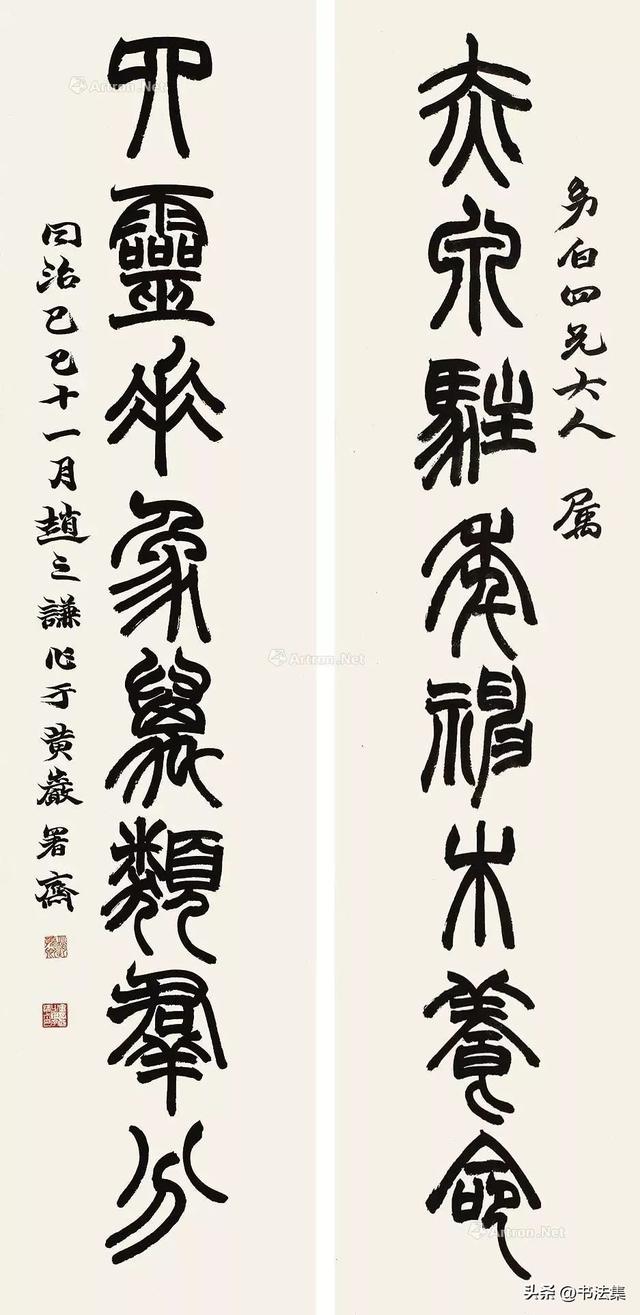 白四兄大人 属
赤泉駐年神木養命
四靈垂象萬類羣分
同治己巳十一月趙之謙作于黄巖署齋
Artron.Net
Artron.Net
Artron.Net
头条 @书法集